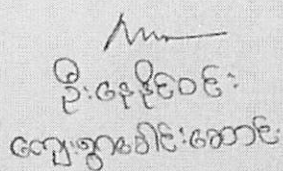 ဦးနေနိုင်ဝင်း
ကျေးရွာခေါင်းဆောင်